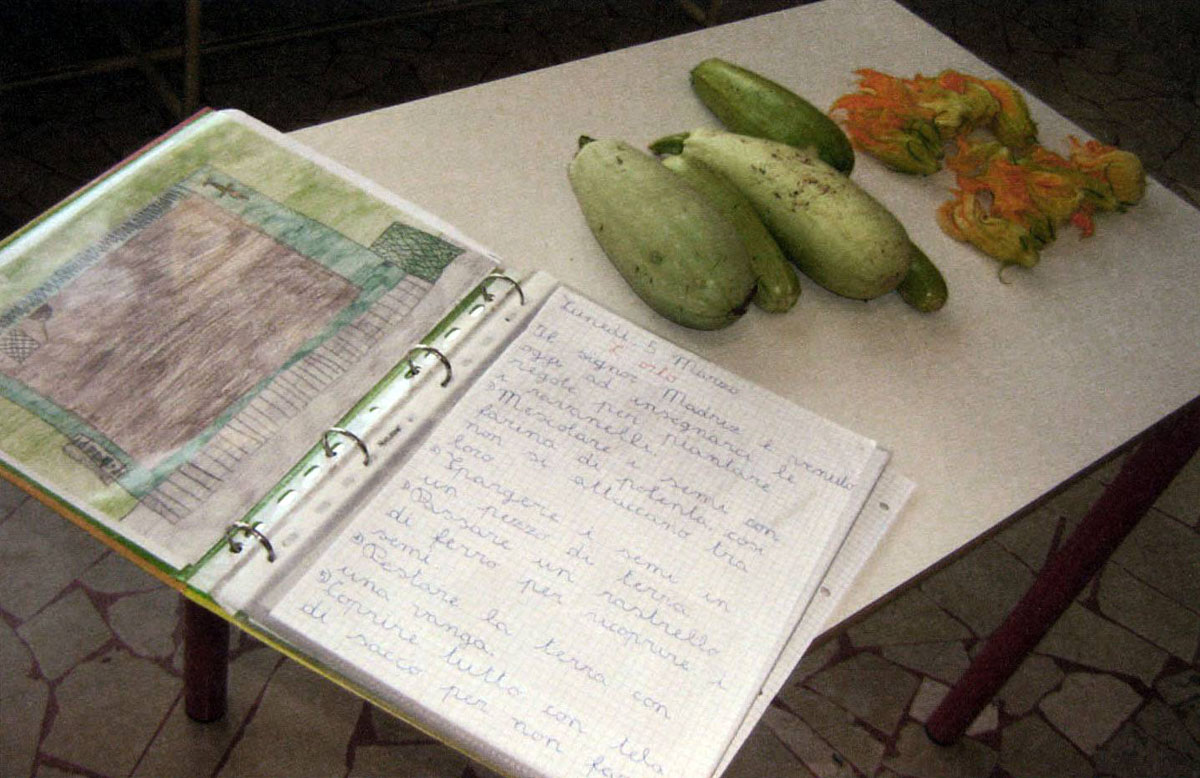 Lunedì, 5 Marzo
L'orto
Il signor Madriz è venuto
oggi ad insegnarci le
regole per piantare
i ravanelli.
Mescolare i semi con
farina di polenta, così
non si attaccano tra
loro
Spargere i semi in
un pezzo di terra
Passare un rastrello
di ferro per ricoprire i
semi.
Pestare la terra con
una vanga.
Coprire tutto con tela
di sacco per non